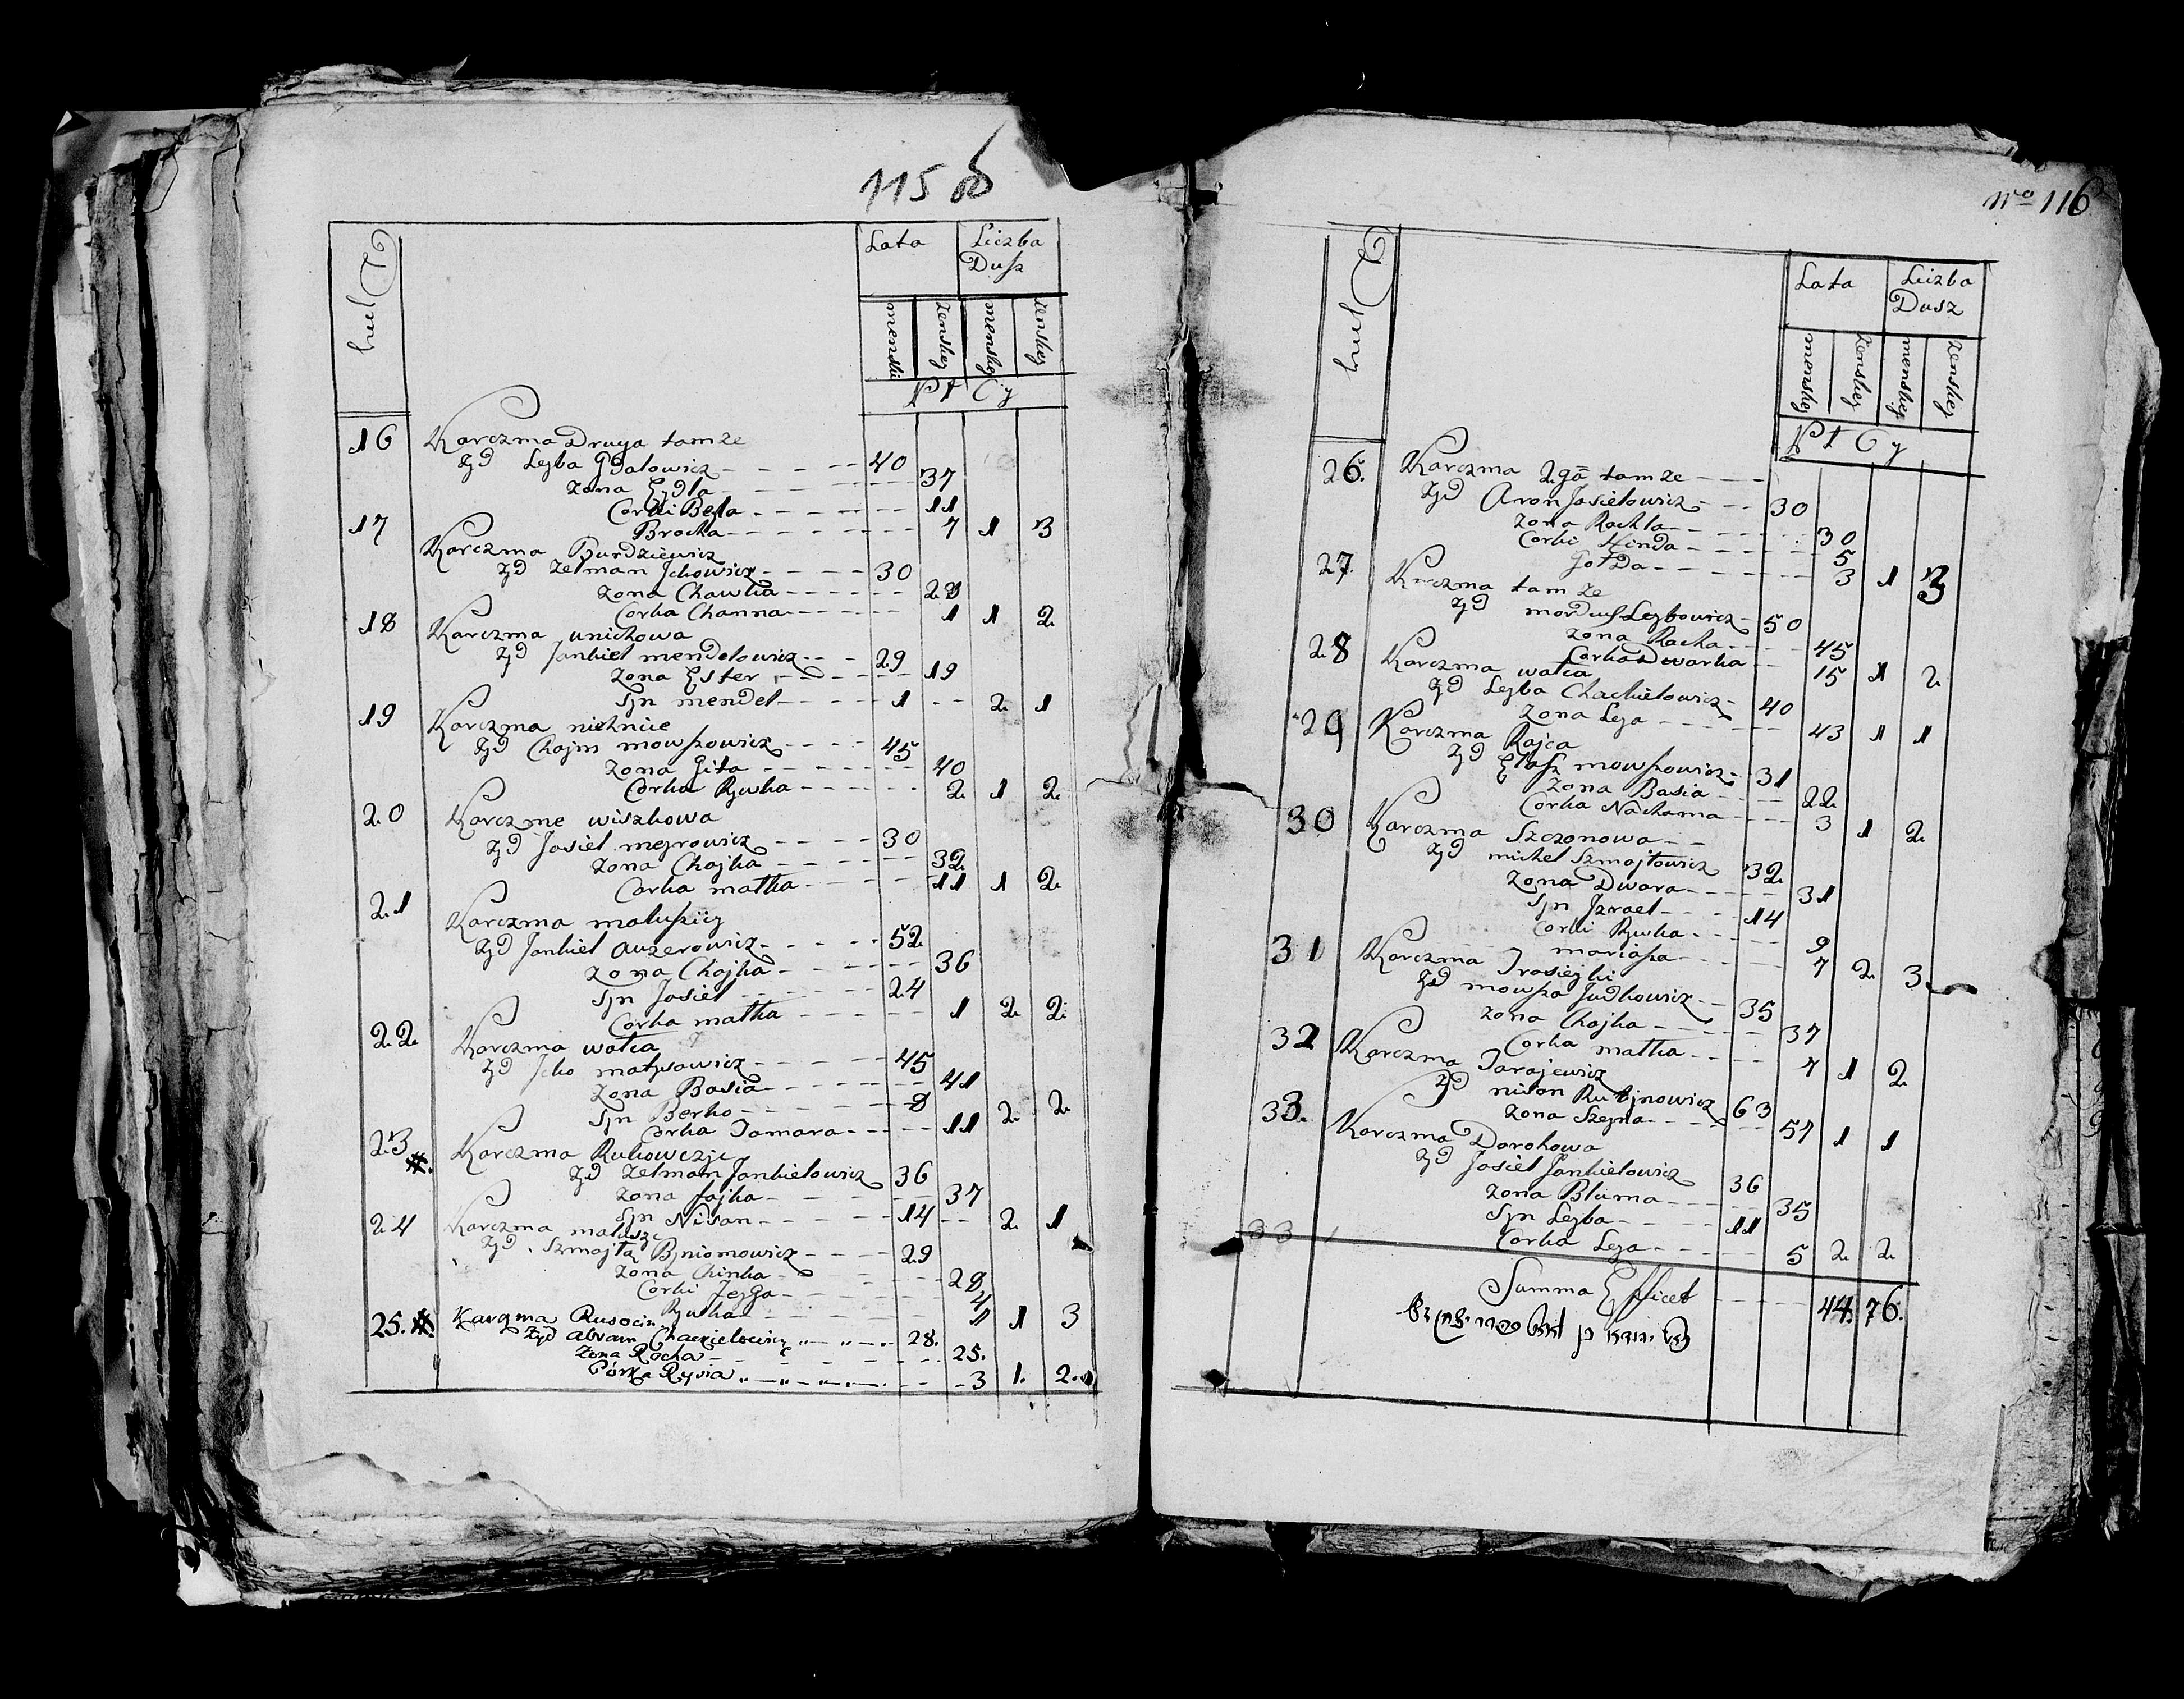 115 ob
Lata Liczba Dusz
menski zenskiey menskiey zenskiey
N t C y
16 Karczma Druga tamze
Zyd Leyba Gdalowicz 40
zona Eydla 37
Corki Beyla 11
Brocha 7 1 3
17 Karczma Burdziewicz
Zyd Zelman Jckowicz 30
zona Chawka 28
Corka Channa 1 1 2
18 Karczma unichowa
Zyd Jankiel mendelowicz 29
zona Ester 19
Syn mendel 1 2 1
19 Karczma
Zyd Chaym mowszowicz 45
zona Gita 40
Corka Rywka 2 1 2
20 Karczme wiszkowa
Zyd Josiel meyrowicz 30
zona Chayka 32
Corka malka 11 1 2
21 Karczma
Zyd Jankiel Auzerowicz 52
zona Chayka 36
Syn Josiel 24
Corka malka 1 2 2
22 Karczma walca
Zyd Jcko matysowicz 45
zona Basia 41
Syn Berko 8
Corka Tamara 11 2 2
23 Karczma
Zyd Zelman Jankielowicz 36
zona fayka 37
Syn Nisan 14 2 1
24 Karczma
Zyd Szmayla 29
zona Chinka 28
Corki
Rywka 1 3
25. Karczma
Zyd Abram Chackielowicz 28.
zona Rocha 25.
Córka Rysia 3 1. 2.
No 116
Lata Liczba Dusz
menskiey zenskiey menskiey zenskiey
N t C y
26. Karczma 2ga tamze
Zyd Aron Josielowicz 30
zona Rachla 30
Corki Hinda 5
Golda 3 1 3
27. Karczma tamze
Zyd morduch Leybowicz 50
zona Racha 45
Corka Dwarka 15 1 2
28 Karczma walca
Zyd Leyba Chackielowicz 40
zona Leya 43 1 1
29 Karczma Rayca
Zyd Eliasz mowszowicz 31
zona Basia 22
Corka Nachama 3 1 2
30 Karczma Szczonowa
Zyd michel Szmaylowicz 32
zona Dwora 31
Syn Jzrael 14
Corki Rywka 9
mariasza 7 2 3
31 Karczma
Zyd mowsza Judkowicz 35
zona Chayka 37
Corka malka 7 1 2
32 Karczma Tarajewicz
Zyd nison Rubinowicz 63
zona Szeyna 57 1 1
33. Karczma Dorohowa
Zyd Josiel Jankielowicz 36
zona Bluma 35
Syn Leyba 11
Corka Leya 5 2 2
33
Summa Efficet 44. 76.